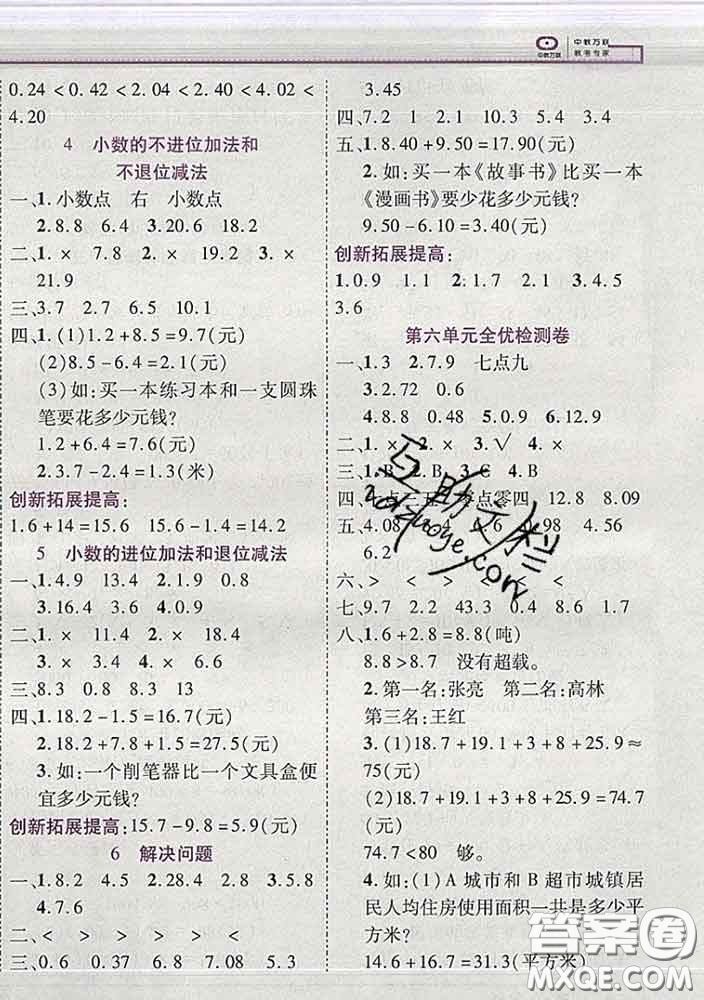 中教万联
中教万联
教考专家
0.24<0.42<2.04<2.40<4.02<
4.20
4 小数的不进位加法和
不退位减法
一、1.小数点 右 小数点
2.8.8 6.4 3.20.6 18.2
二、1.× 7.8 2.× 19.2 3.×
21.9
三、3.7 2.7 6.5 10.1
四、1.(1)1.2+8.5=9.7(元)
(2)8.5-6.4=2.1(元)
(3)如:买一本练习本和一支圆珠
笔要花多少元钱?
1.2+6.4=7.6(元)
2.3.7-2.4=1.3(米)
创新拓展提高:
1.6+14=15.6 15.6-1.4=14.2
5 小数的进位加法和退位减法
一、1.4.9 13.4 2.1.9 0.8
3.16.4 3.6 4.0.9
二、1.× 11.4 2.× 18.4
3.× 3.4 4.× 6.6
三、8.3 0.8 8.3 13
四、1.18.2-1.5=16.7(元)
2.18.2+7.8+1.5=27.5(元)
3.如:一个削笔器比一个文具盒便
宜多少元钱?
创新拓展提高:15.7-9.8=5.9(元)
6 解决问题
一、1.8.2 4.5 2.28.4 2.8 3.5.8
4.7.6
二、< > > > > <
三、0.6 0.37 6.8 7.08 5.3
3.45
四、7.2 1 2.1 10.3 5.4 3.4
五、1.8.40+9.50=17.90(元)
2.如:买一本《故事书》比买一本
《漫画书》要少花多少元钱?
9.50-6.10=3.40(元)
创新拓展提高:
1.0.9 1.1 2.1.7 2.1 3.4.5
3.6
第六单元全优检测卷
一、1.3 2.7.9 七点九
3.2.72 0.6
4.8.8 0.48 5.0.9 6.12.9
二、1.× 2.× 3.√ 4.×
三、1.B 2.B 3.C 4.B
四、点三五 零点零四 12.8 8.09
五、4.08 4.6 0.98 4.56
6.2
六、> > < < < <
七、9.7 2.2 43.3 0.4 8.6 1.9
八、1.6+2.8=8.8(吨)
8.8>8.7 没有超载。
2.第一名:张亮 第二名:高林
第三名:王红
3.(1)18.7+19.1+3+8+25.9≈
75(元)
(2)18.7+19.1+3+8+25.9=74.7
(元)
74.7<80 够。
4.如:(1)A城市和B超市城镇居
民人均住房使用面积一共是多少平
方米?
14.6+16.7=31.3(平方米)
互助文档
zuoye.com
答案圈
MXQE.COM